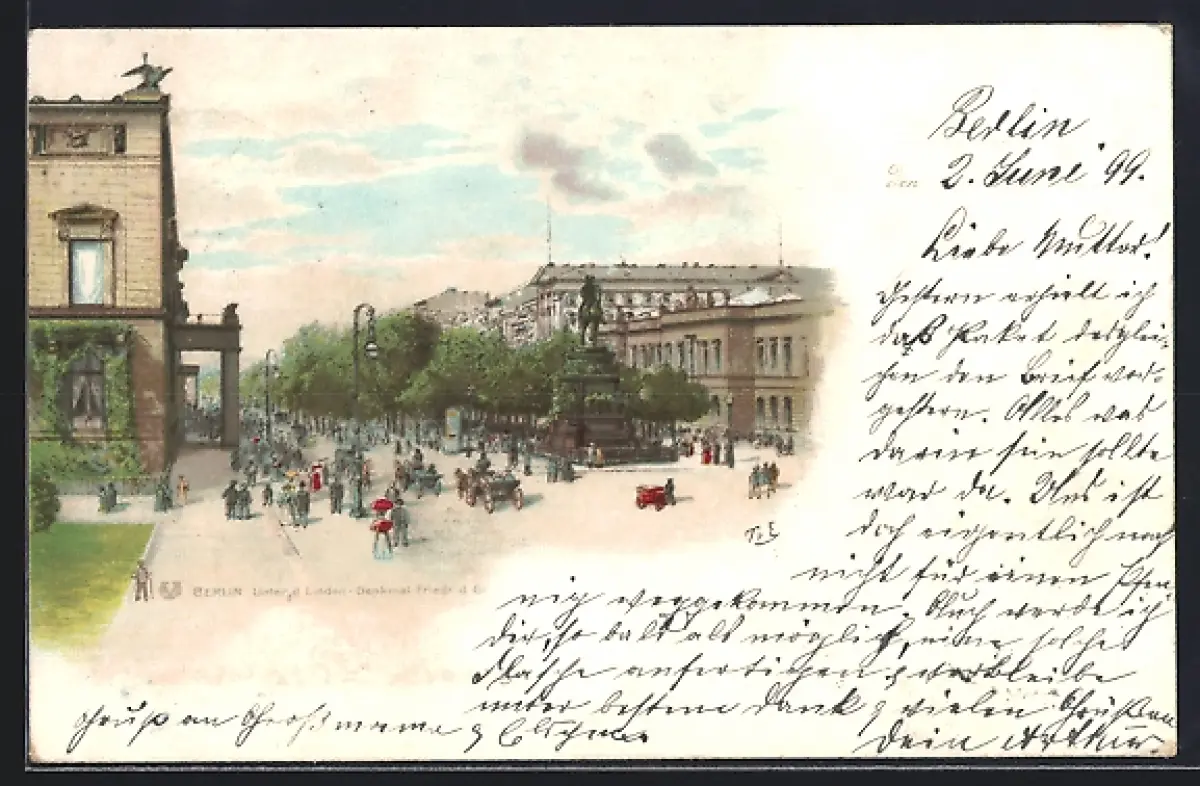 Berlin
den 2. Juni 99.
Liebe Mutter!
Gestern erhielt ich
daß Paket desglei-
chen den Brief vor-
gestern. Alles was
darin sein sollte
war da. Uns ist
doch eigentlich noch
nicht für einen Pfen-
nig weggekommen. Auch werde ich
Dir, so bald als möglich, eine solche
Flasche anfertigen & verbleibe
unter bestem Dank & vielen Grüßen
Dein Arthur.
Gruß an Grossmama &
Th. E
BERLIN Unter d Linden - Denkmal Friedr. d. G